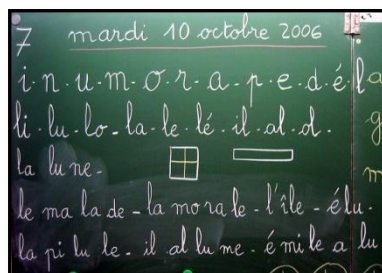 7 mardi 10 octobre 2006
i. n. u. m. o. r. a. p. e. d. é. l
li. lu. lo. la. le. lé. il. al. ol.
la lu ne.
le ma la de - la mo ra le - l'île - é lu.
la pi lu le. il al lu me. é mi le a lu